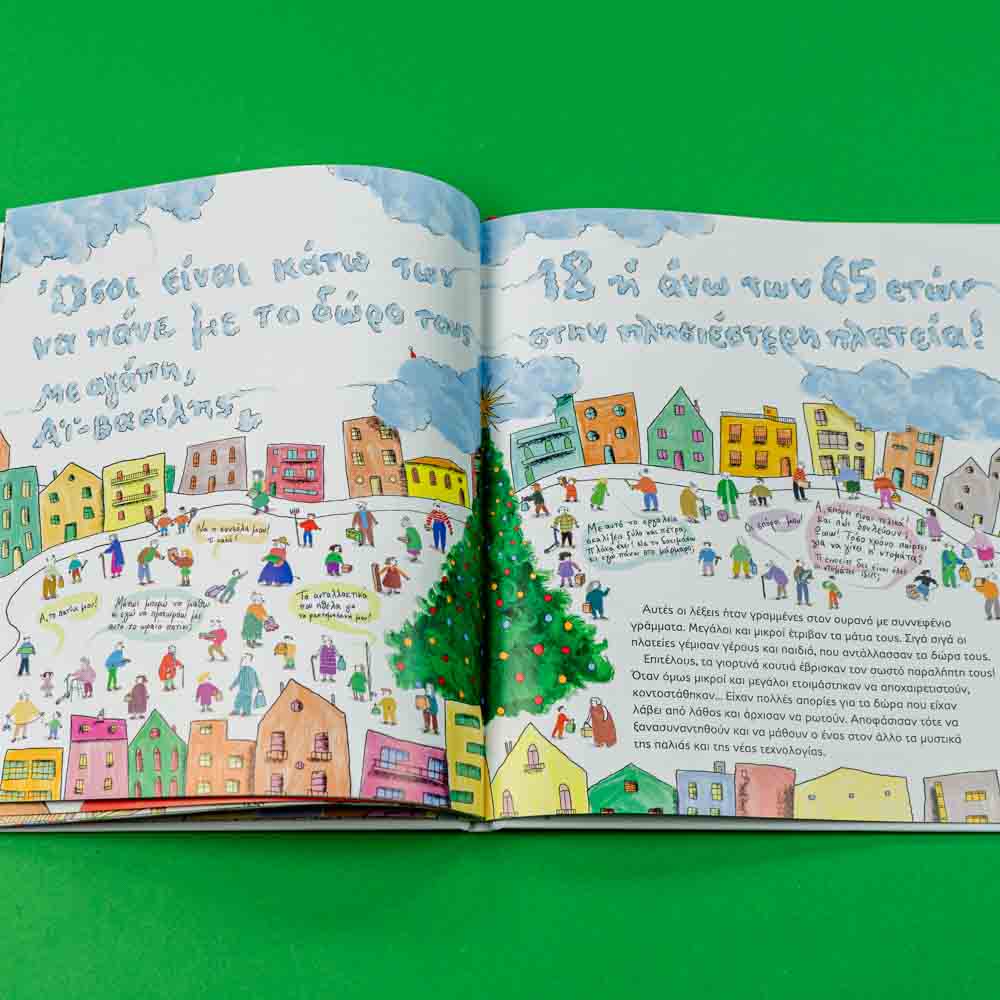 Όσοι είναι κάτω των
να πάνε με το δώρο τους
με αγάπη,
Αϊ-Βασίλης
18 ή άνω των 65 ετών
στην πλησιέστερη πλατεία!
Να η κονσόλα μου!
Τι καλά!
Α, τα πατίνια μου!
Μήπως μπορώ να μάθω
κι εγώ να προχωράω με
αυτό το ωραίο πατίνι;
Τα ανταλλακτικά
που ήθελα για
το ραπτομηχανή μου!
Με αυτό το εργαλείο
σκαλίζει ξύλο και πέτρα;
Τι πλάκα έχει! Να το δοκιμάσω
κι εγώ πάνω στο μάρμαρο;
Οι σπόροι μου!
Α, σπόροι είναι τελικά!
Και πώς δουλεύουν;
Πωπω! Τόσο χρόνο παίρνει
για να γίνει η ντομάτα;
Αυτές οι λέξεις ήταν γραμμένες στον ουρανό με συννεφένιο
γράμματα. Μεγάλοι και μικροί έτριβαν τα μάτια τους. Σιγά σιγά οι
πλατείες γέμισαν γέρους και παιδιά, που αντάλλασσαν τα δώρα τους.
Επιτέλους, τα γιορτινά κουτιά έβρισκαν τον σωστό παραλήπτη τους!
Όταν όμως μικροί και μεγάλοι ετοιμάστηκαν να αποχαιρετιστούν,
κοντοστάθηκαν... Είχαν πολλές απορίες για τα δώρα που είχαν
λάβει από λάθος και άρχισαν να ρωτούν. Αποφάσισαν τότε να
ξανασυναντηθούν και να μάθουν ο ένας στον άλλο τα μυστικά
της παλιάς και της νέας τεχνολογίας.